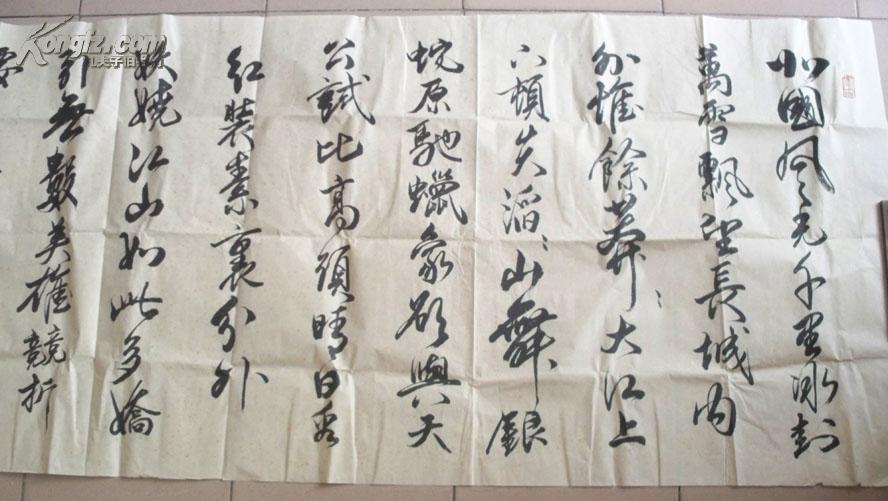 北國風光千里冰封
萬雪飄望長城内
外惟餘莽〻大江上
下頓失滔〻山舞銀
蛇原馳蠟象欲與天
公試比高須晴日看
紅裝素裹分外
妖嬈江山如此多嬌
引無數英雄競折
Kongfz.com
孔夫子旧书网